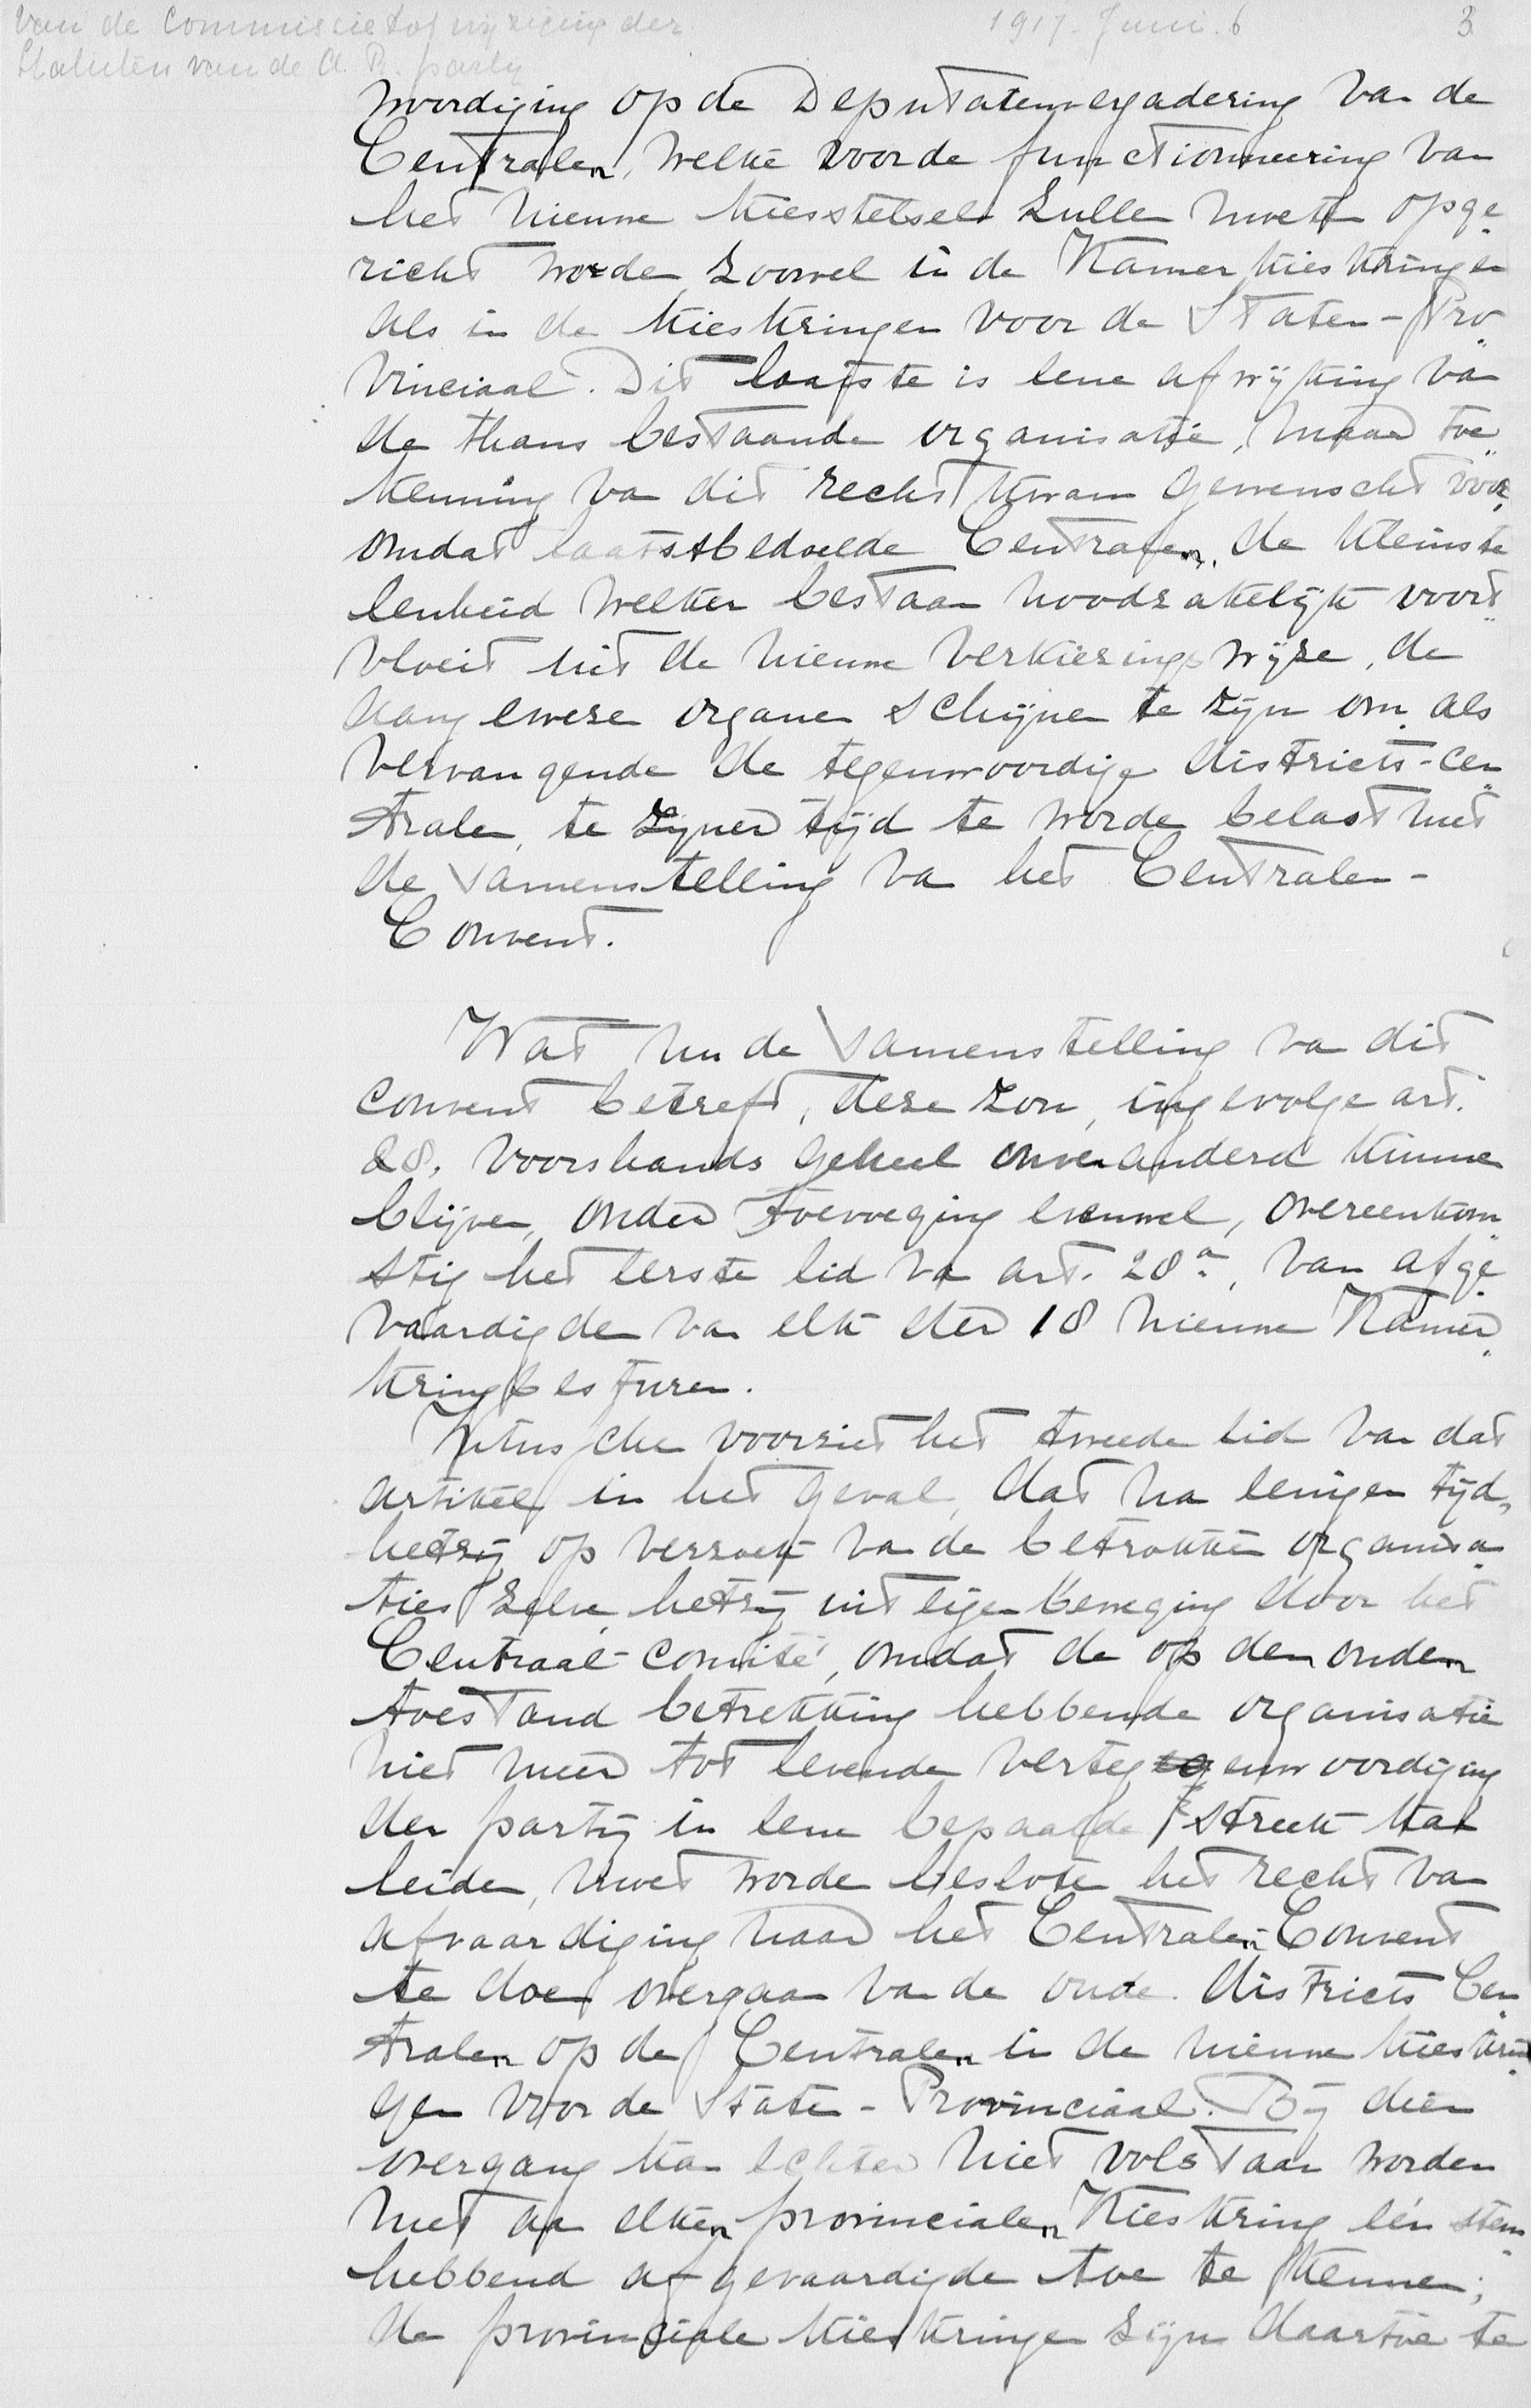 van de Commissie tot wijziging der 1917. Juni. 6 3
Statuten van de A. R. party
woordiging op de Deputatenvergadering van de
Centralen, welke voor de functionneering van
het nieuwe kiesstelsel zullen moeten opge„
richt worden, zoowel in de Kamerkieskringen
als in de kieskringen voor de Staten-Pro„
vinciaal. Dit laatste is eene afwijking van
de thans bestaande organisatie, maar toe„
kenning van dit recht kwam gewenscht voor,
omdat laatstbedoelde Centralen, de kleinste
eenheid welker bestaan noodzakelijk voort„
vloeit uit de nieuwe verkiezingswijze, de
aangewezen organen schijnen te zijn om als
vervangende de tegenwoordige districts-cen„
tralen, te zijner tijd te worden belast met
de samenstelling van het Centralen-
Convent.
Wat nu de samenstelling van dit
convent betreft, deze zou, ingevolge art.
28, voorshands geheel onveranderd kunnen
blijven, onder toevoeging evenwel, overeenkom„
stig het eerste lid van art. 28a, van afge„
vaardigden van elk der 18 nieuwe Kamer„
kringbesturen.
Intusschen voorziet het tweede lid van dat
artikel in het geval, dat na eenigen tijd,
hetzij op verzoek van de betrokken organisa„
ties zelve, hetzij uit eigen beweging door het
Centraal-Comité, omdat de op den ouden
toestand betrekking hebbende organisatie
niet meer tot levende vertegenwoordiging
der partij in eene bepaalde streek kan
leiden, moet worden besloten het recht van
afvaardiging naar het Centralen-Convent
te doen overgaan van de oude districts Cen„
tralen op de Centralen in de nieuwe kieskrin„
gen voor de Staten-Provinciaal. Bij dien
overgang kan echter niet volstaan worden
met aan elken provincialen Kieskring één stem„
hebbend afgevaardigde toe te kennen;
de provinciale kieskringen zijn daartoe te